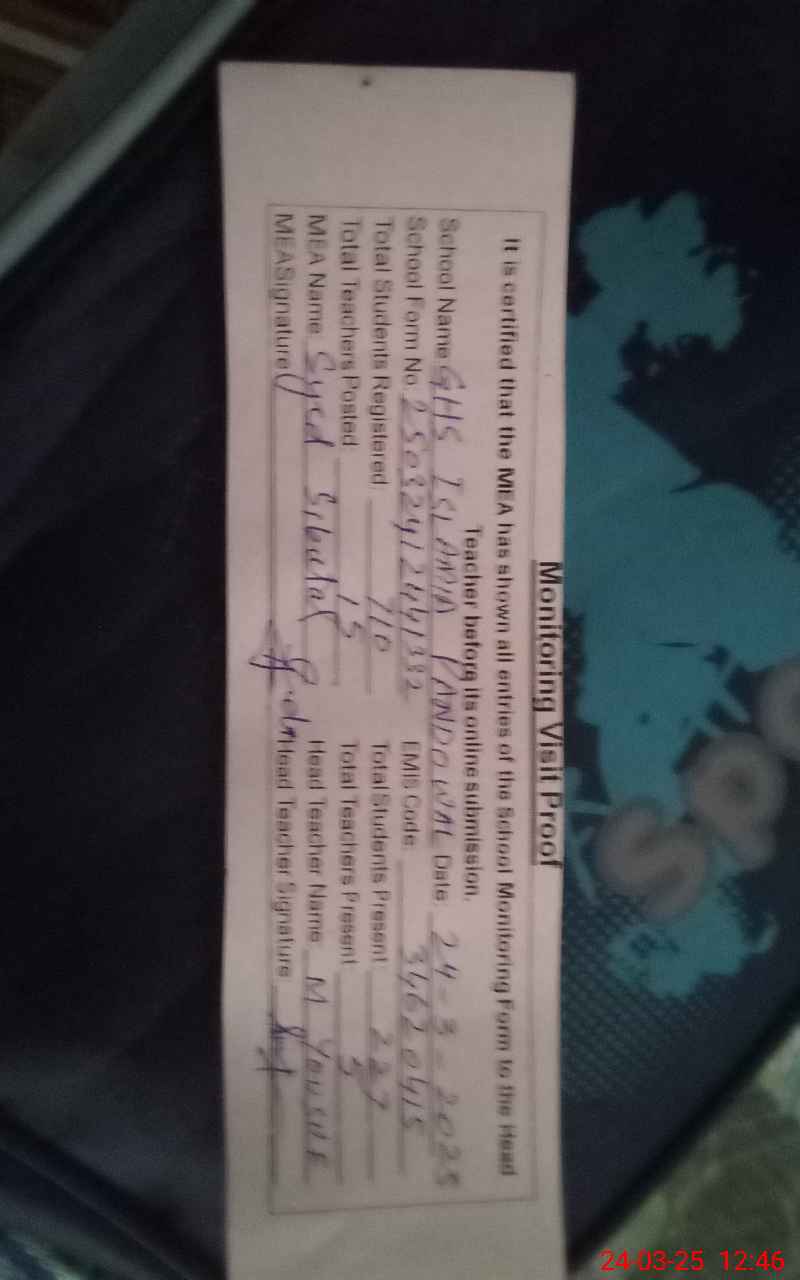 Monitoring Visit Proof
It is certified that the MEA has shown all entries of the School Monitoring Form to the Head
Teacher before its online submission.
School Name GHS ISLAMIA PANDOWAL Date: 24-3-2025
School Form No. 25032412441332 EMIS Code: 34620415
Total Students Registered: 710 Total Students Present 227
Total Teachers Posted: 15 Total Teachers Present 5
MEA Name: Syed Head Teacher Name: M YOUSUF
MEASignature Head Teacher Signature
24-03-25 12:46